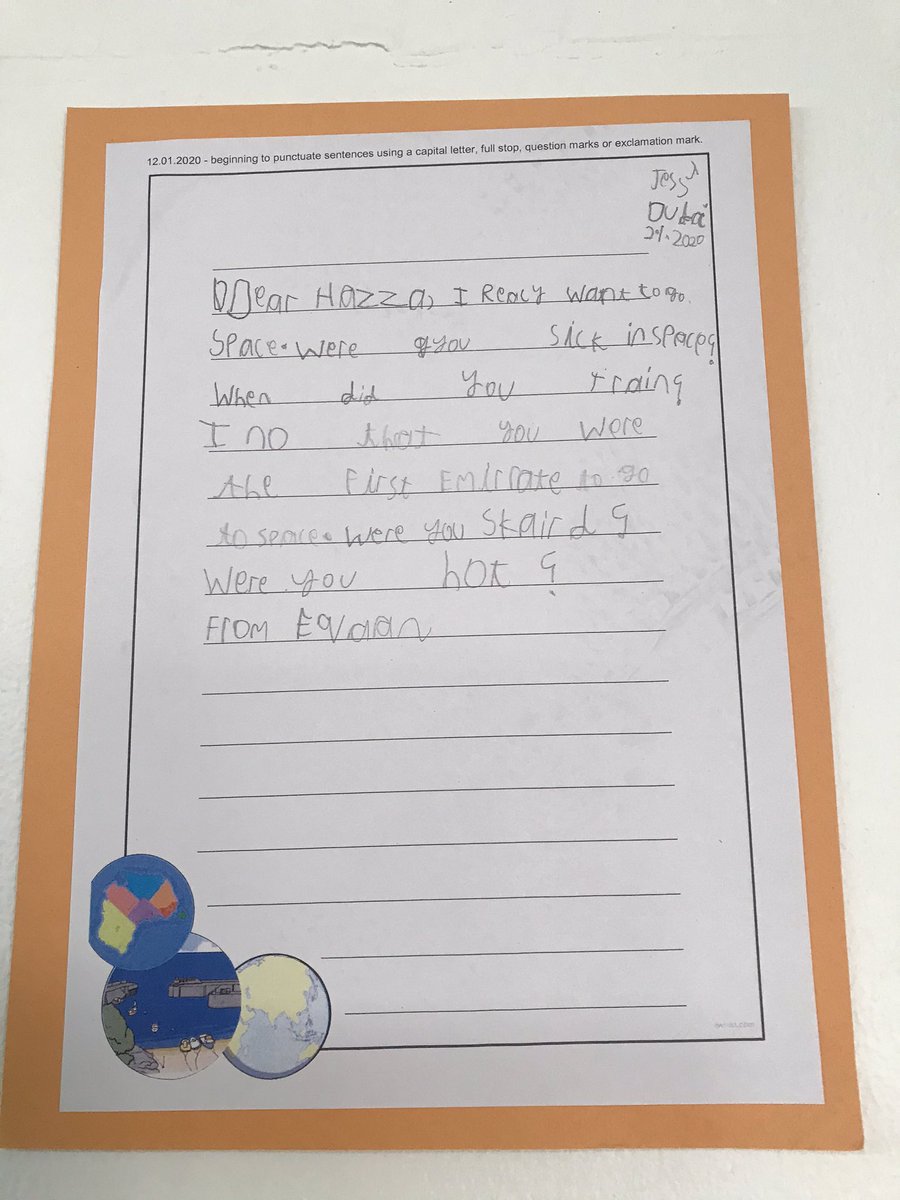 12.01.2020 - beginning to punctuate sentences using a capital letter, full stop, question marks or exclamation mark.
Jess
Dubai
2020
Dear Hazza, I Realy want to go
Space. were you sick in space?
When did you train?
I no that you were
the First Emirate to go
to space. were you Skaird?
Were you hot?
From Eqaan